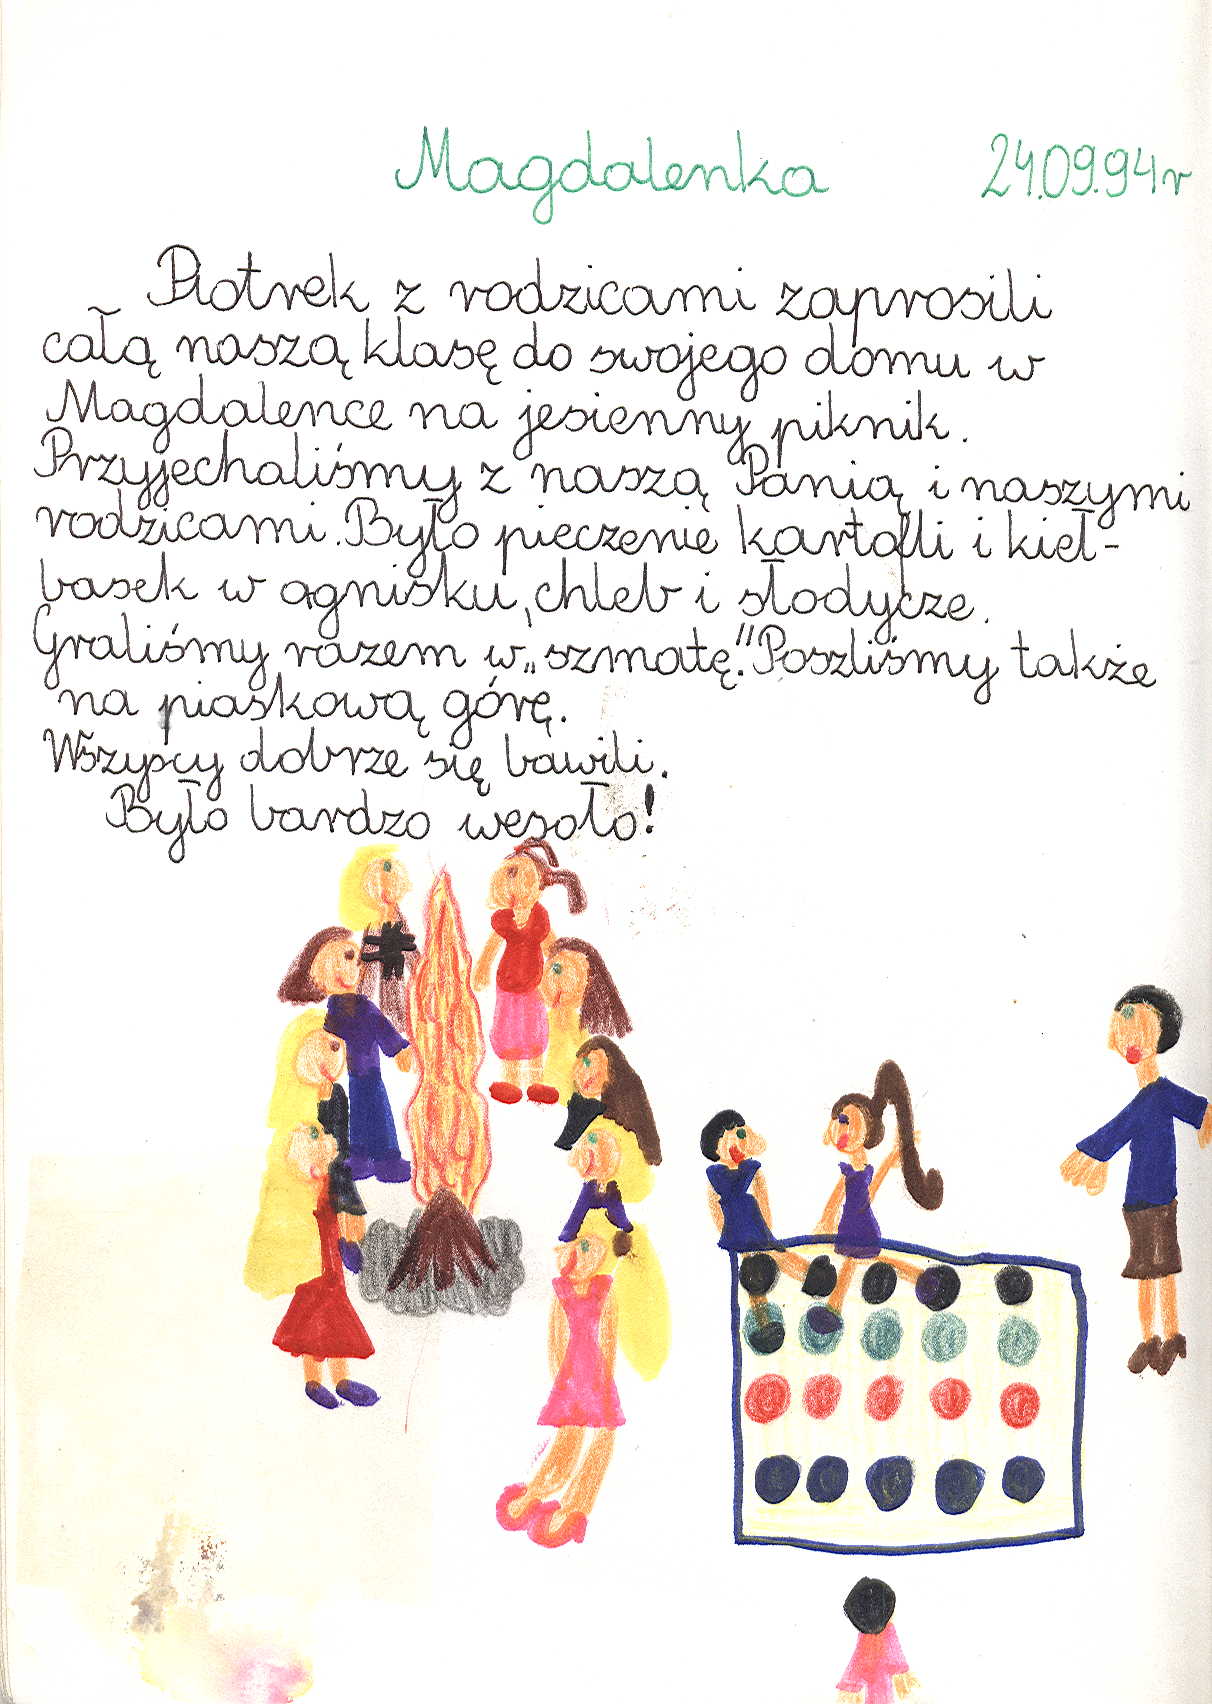 Magdalenka 24.09.94r
Piotrek z rodzicami zaprosili
całą naszą klasę do swojego domu w
Magdalence na jesienny piknik.
Przyjechaliśmy z naszą Panią i naszymi
rodzicami. Było pieczenie kartofli i kieł-
basek w ognisku, chleb i słodycze.
Graliśmy razem w „szmatę". Poszliśmy także
na piaskową górę.
Wszyscy dobrze się bawili.
Było bardzo wesoło!